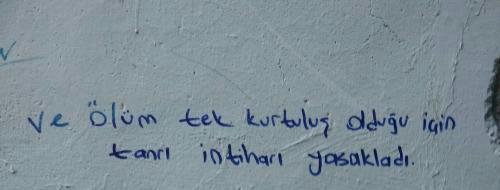 ve Ölüm tek kurtuluş olduğu için
tanrı intiharı yasakladı.